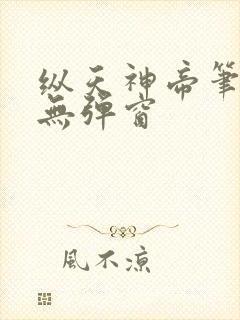 纵天神帝筆
無彈窗
風不涼